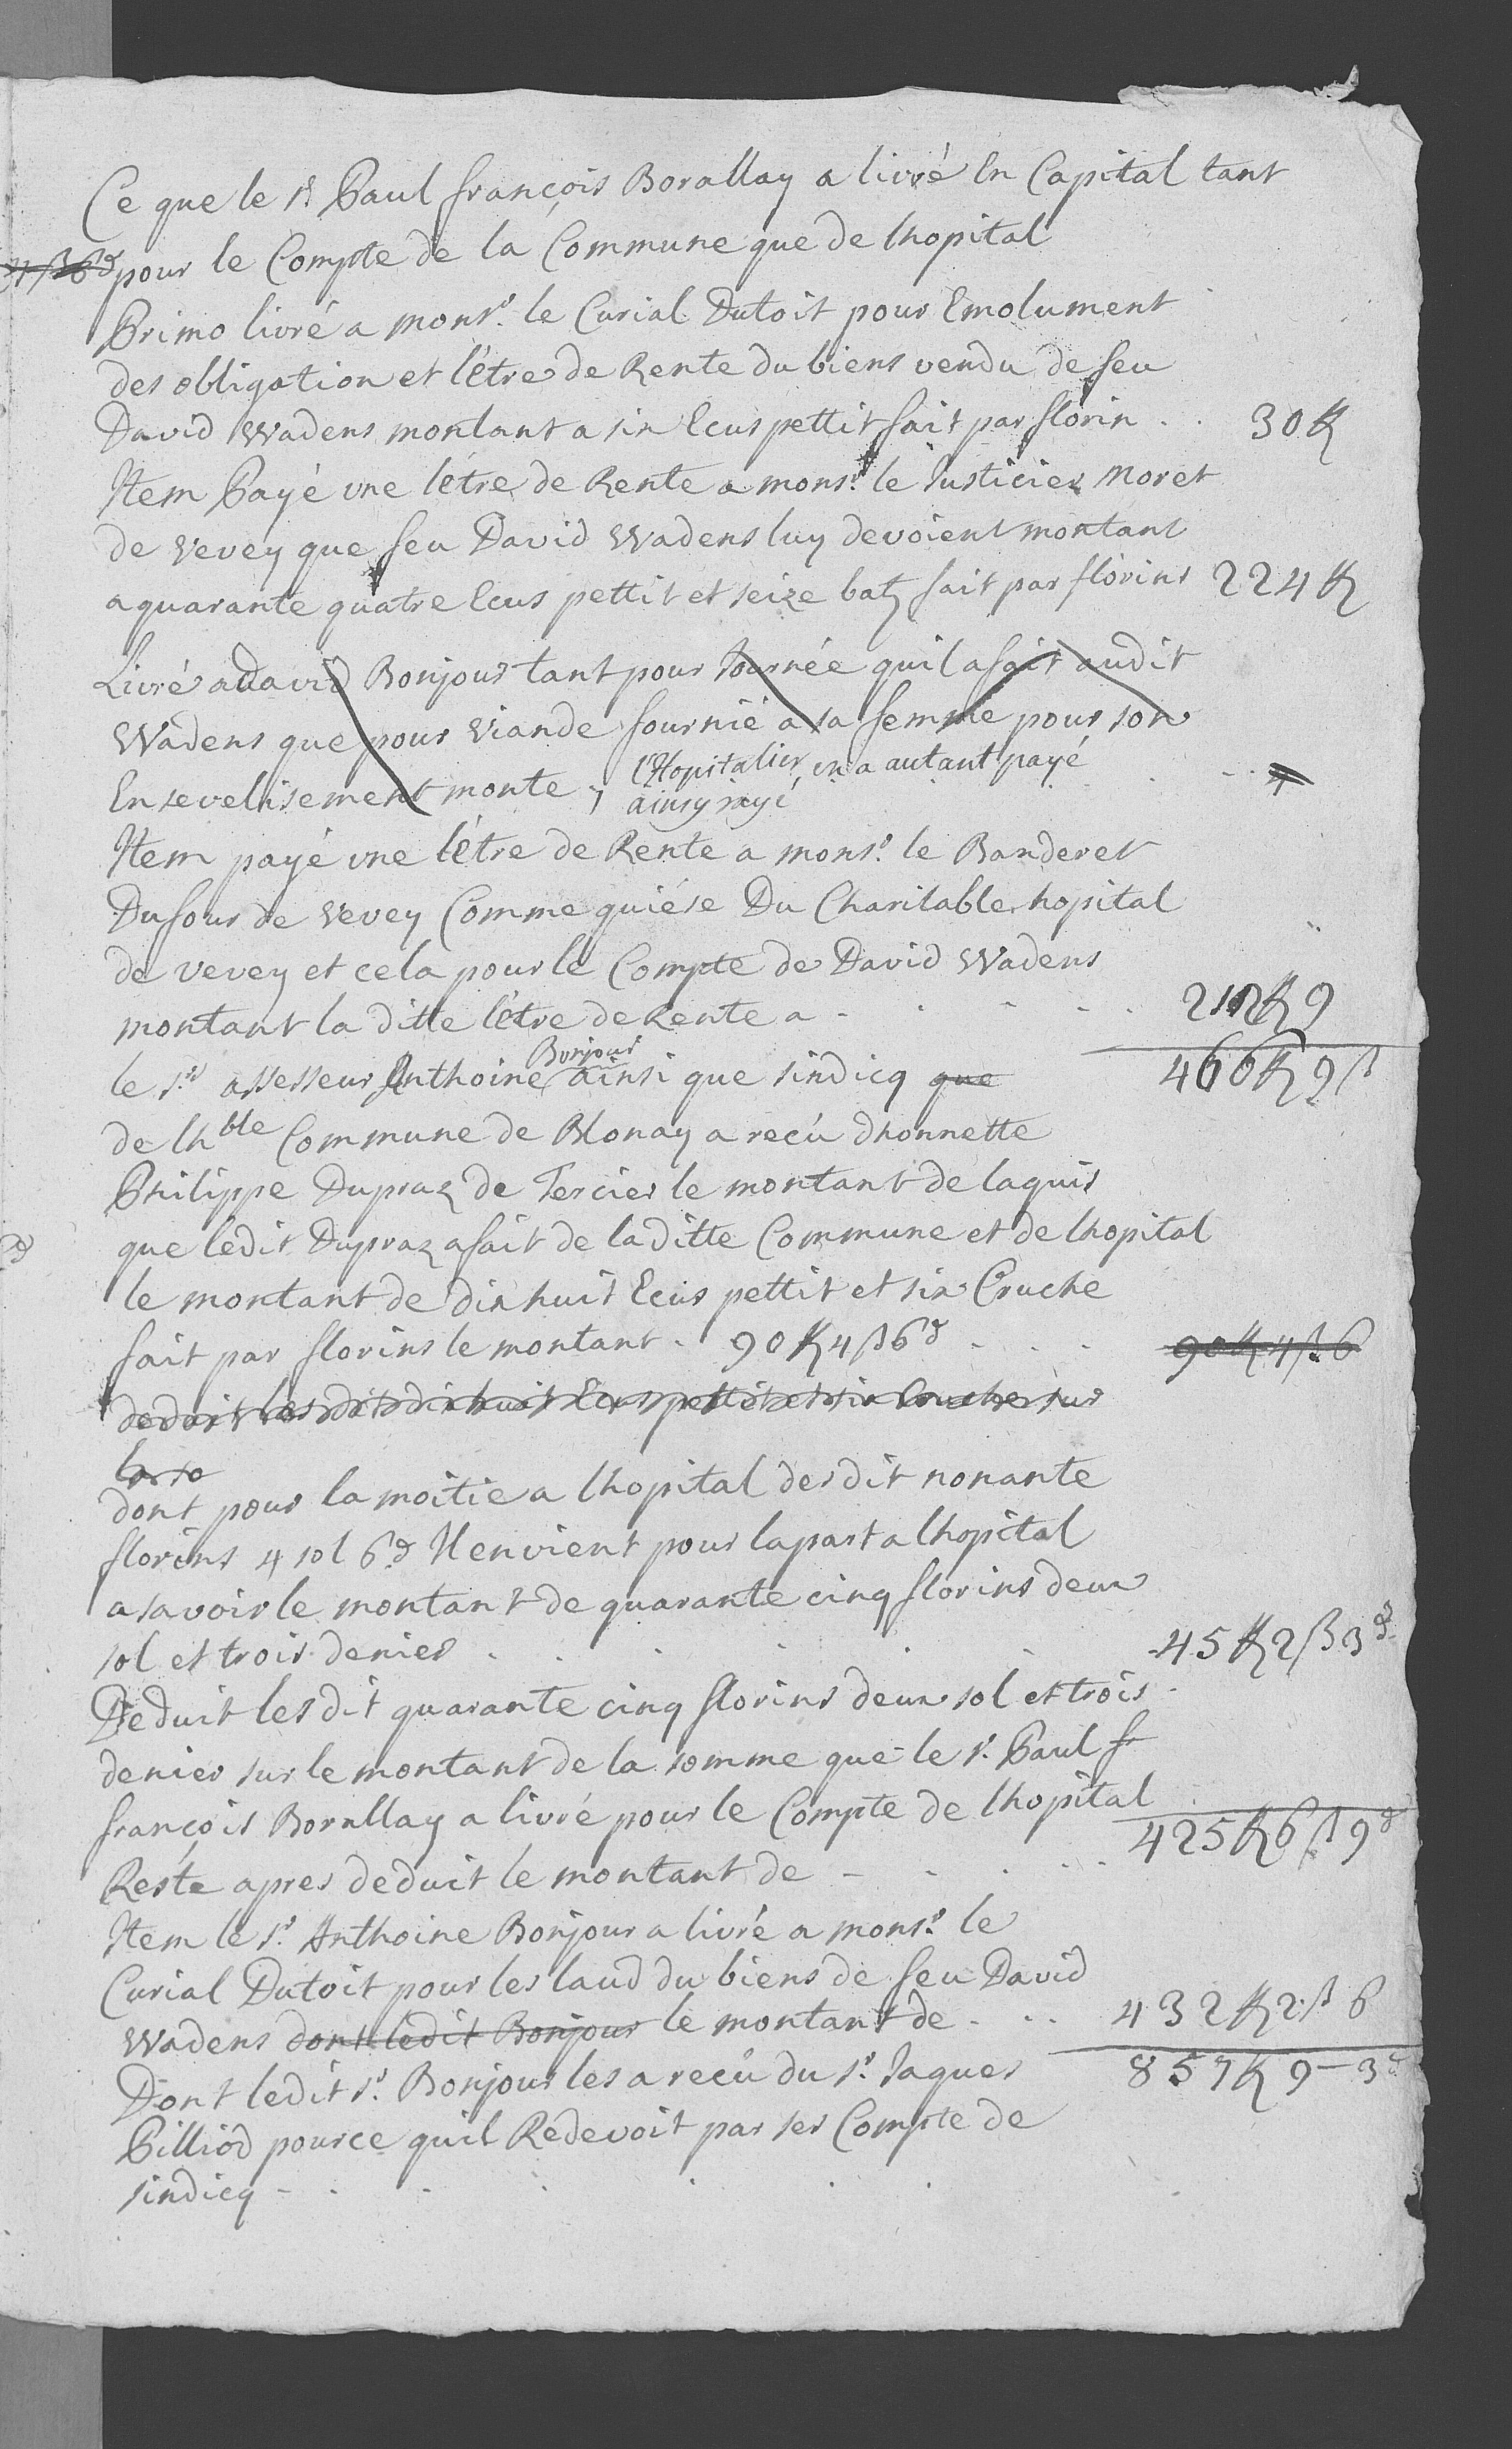 Ce que le Sr Paul françois Borallay a livré En Capital tant
pour le Compte de la Commune que de lhopital
Primo livré a monsr. le Curial Dutoit pour Emolument
des obligation et létre de Rente du biens vendu de feu
David Wadens montant a six Ecus pettit fait par florin . . 30 ff
Item Payé une létre de Rente a monsr. le Justicier Moret
de Vevey que feu David Wadens luy devoient montant
a quarante quatre Ecus pettit et seize batz fait par florins 224 ff
Livré a David Bonjour tant pour tournée quil a fait audit
Wadens que pour viande fournie a sa femme pour son
Ensevelisement monte , l'Hopitalier en a autant payé
ainsy rayé
Item payé une létre de Rente a monsr. le Banderet
Dufour de Vevey Comme quiése Du Charitable hopital
de vevey et cela pour le Compte de David Wadens
montant la ditte létre de Rente a - . - - . 212 ff 9
466 ff 9 ß
le Sr. assesseur Anthoine Bonjour ainsi que sindicq que
de lhble Commune de Blonay a recu dhonnette
Philippe Dupraz de Tercier le montant de laquis
que ledit Dupraz a fait de laditte Commune et de lhopital
le montant de dix huit Ecus pettit et six Cruche
fait par florins le montant . 90 ff 4 ß 6 d . . . 90 ff 4 ß 6
deduit les dit dix huit Ecus pettit et six Cruche sur
dont pour la moitie a lhopital desdit nonante
florins 4 sol 6 d Il en vient pour la part a lhopital
a savoir le montant de quarante cinq florins deux
sol et trois denier . . . . . 45 ff 2 ß 3 d
Deduit lesdit quarante cinq florins deux sol et trois
denier sur le montant de la somme que le Sr. Paul fr
françois Borallay a livré pour le Compte de lhopital
Reste apres deduit le montant de - . . . . 425 ff 6 ß 9 d
Item le Sr. Anthoine Bonjour a livré a monsr. le
Curial Dutoit pour les laud du biens de feu David
Wadens dont ledit Bonjour le montant de . . . 432 ff 2 ß 6
857 ff 9 - 3 d
Dont ledit Sr. Bonjour les a recu du Sr. Jaques
Pilliod pource quil Redevoit par ses Compte de
sindicq - . . . . .